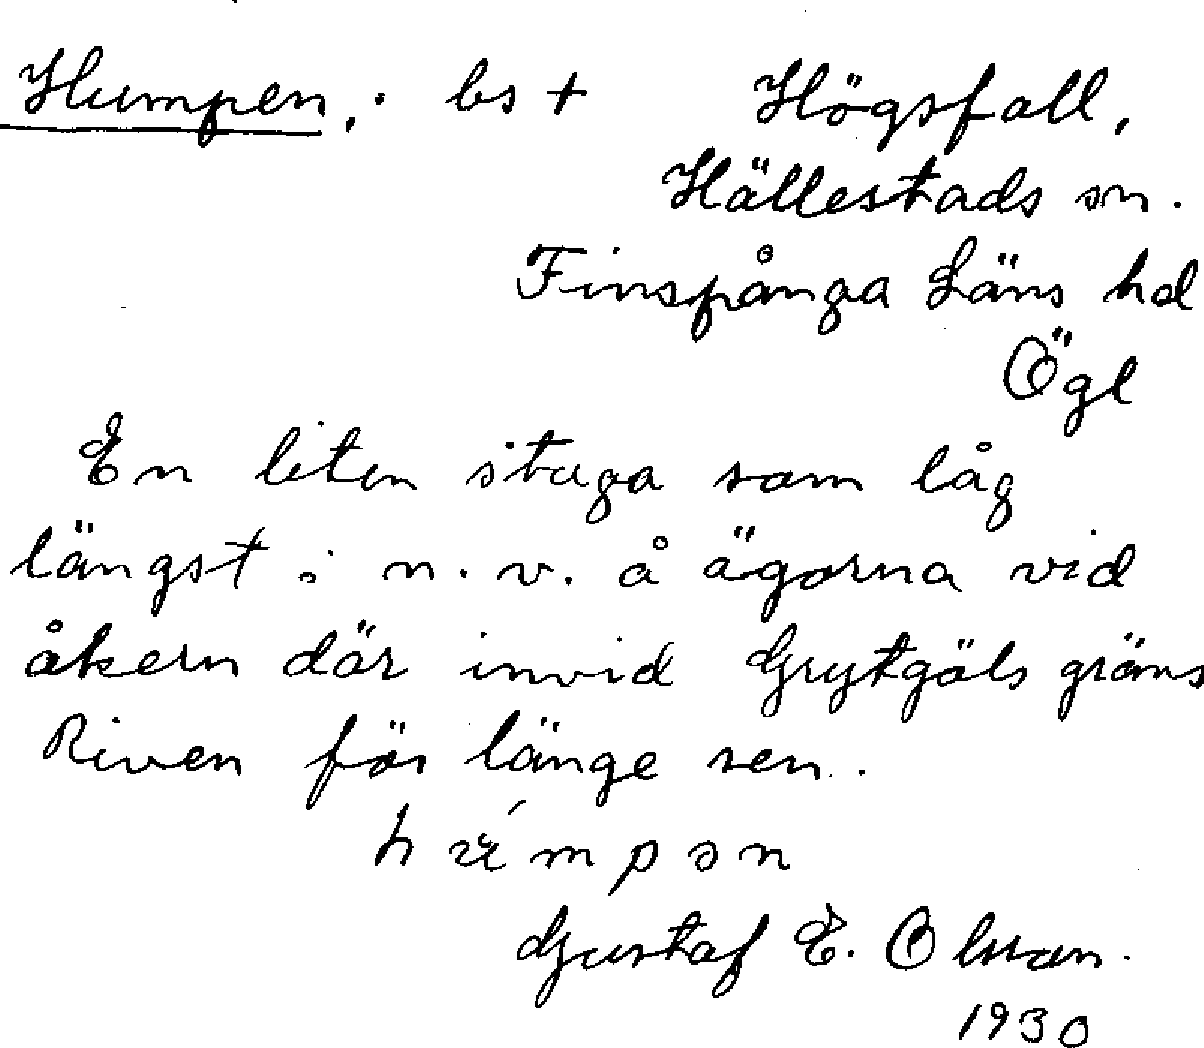 Humpen, . bs +
Högsfall,
Hällestads sn.
Finspånga Läns hd
Ögl
En liten stuga som låg
längst i n.v. å ägorna vid
åkern där invid Grytgöls gräns
Riven för länge sen.
Gustaf E. Olsson.
1930